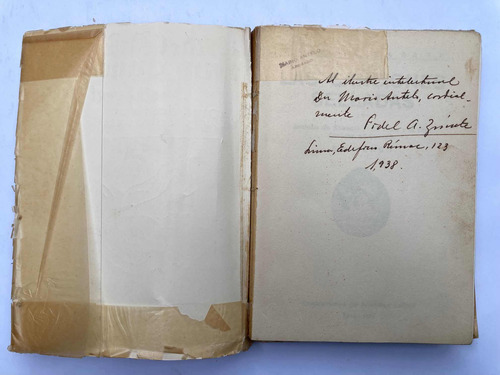 Al ilustre intelectual
Dr. Mario Antelo, cordial-
mente
Fidel A. Zárate
Lima, Edificio Rímac, 123
1,938.